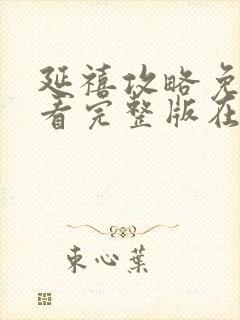 延禧攻略免
看完整版在
束心葉